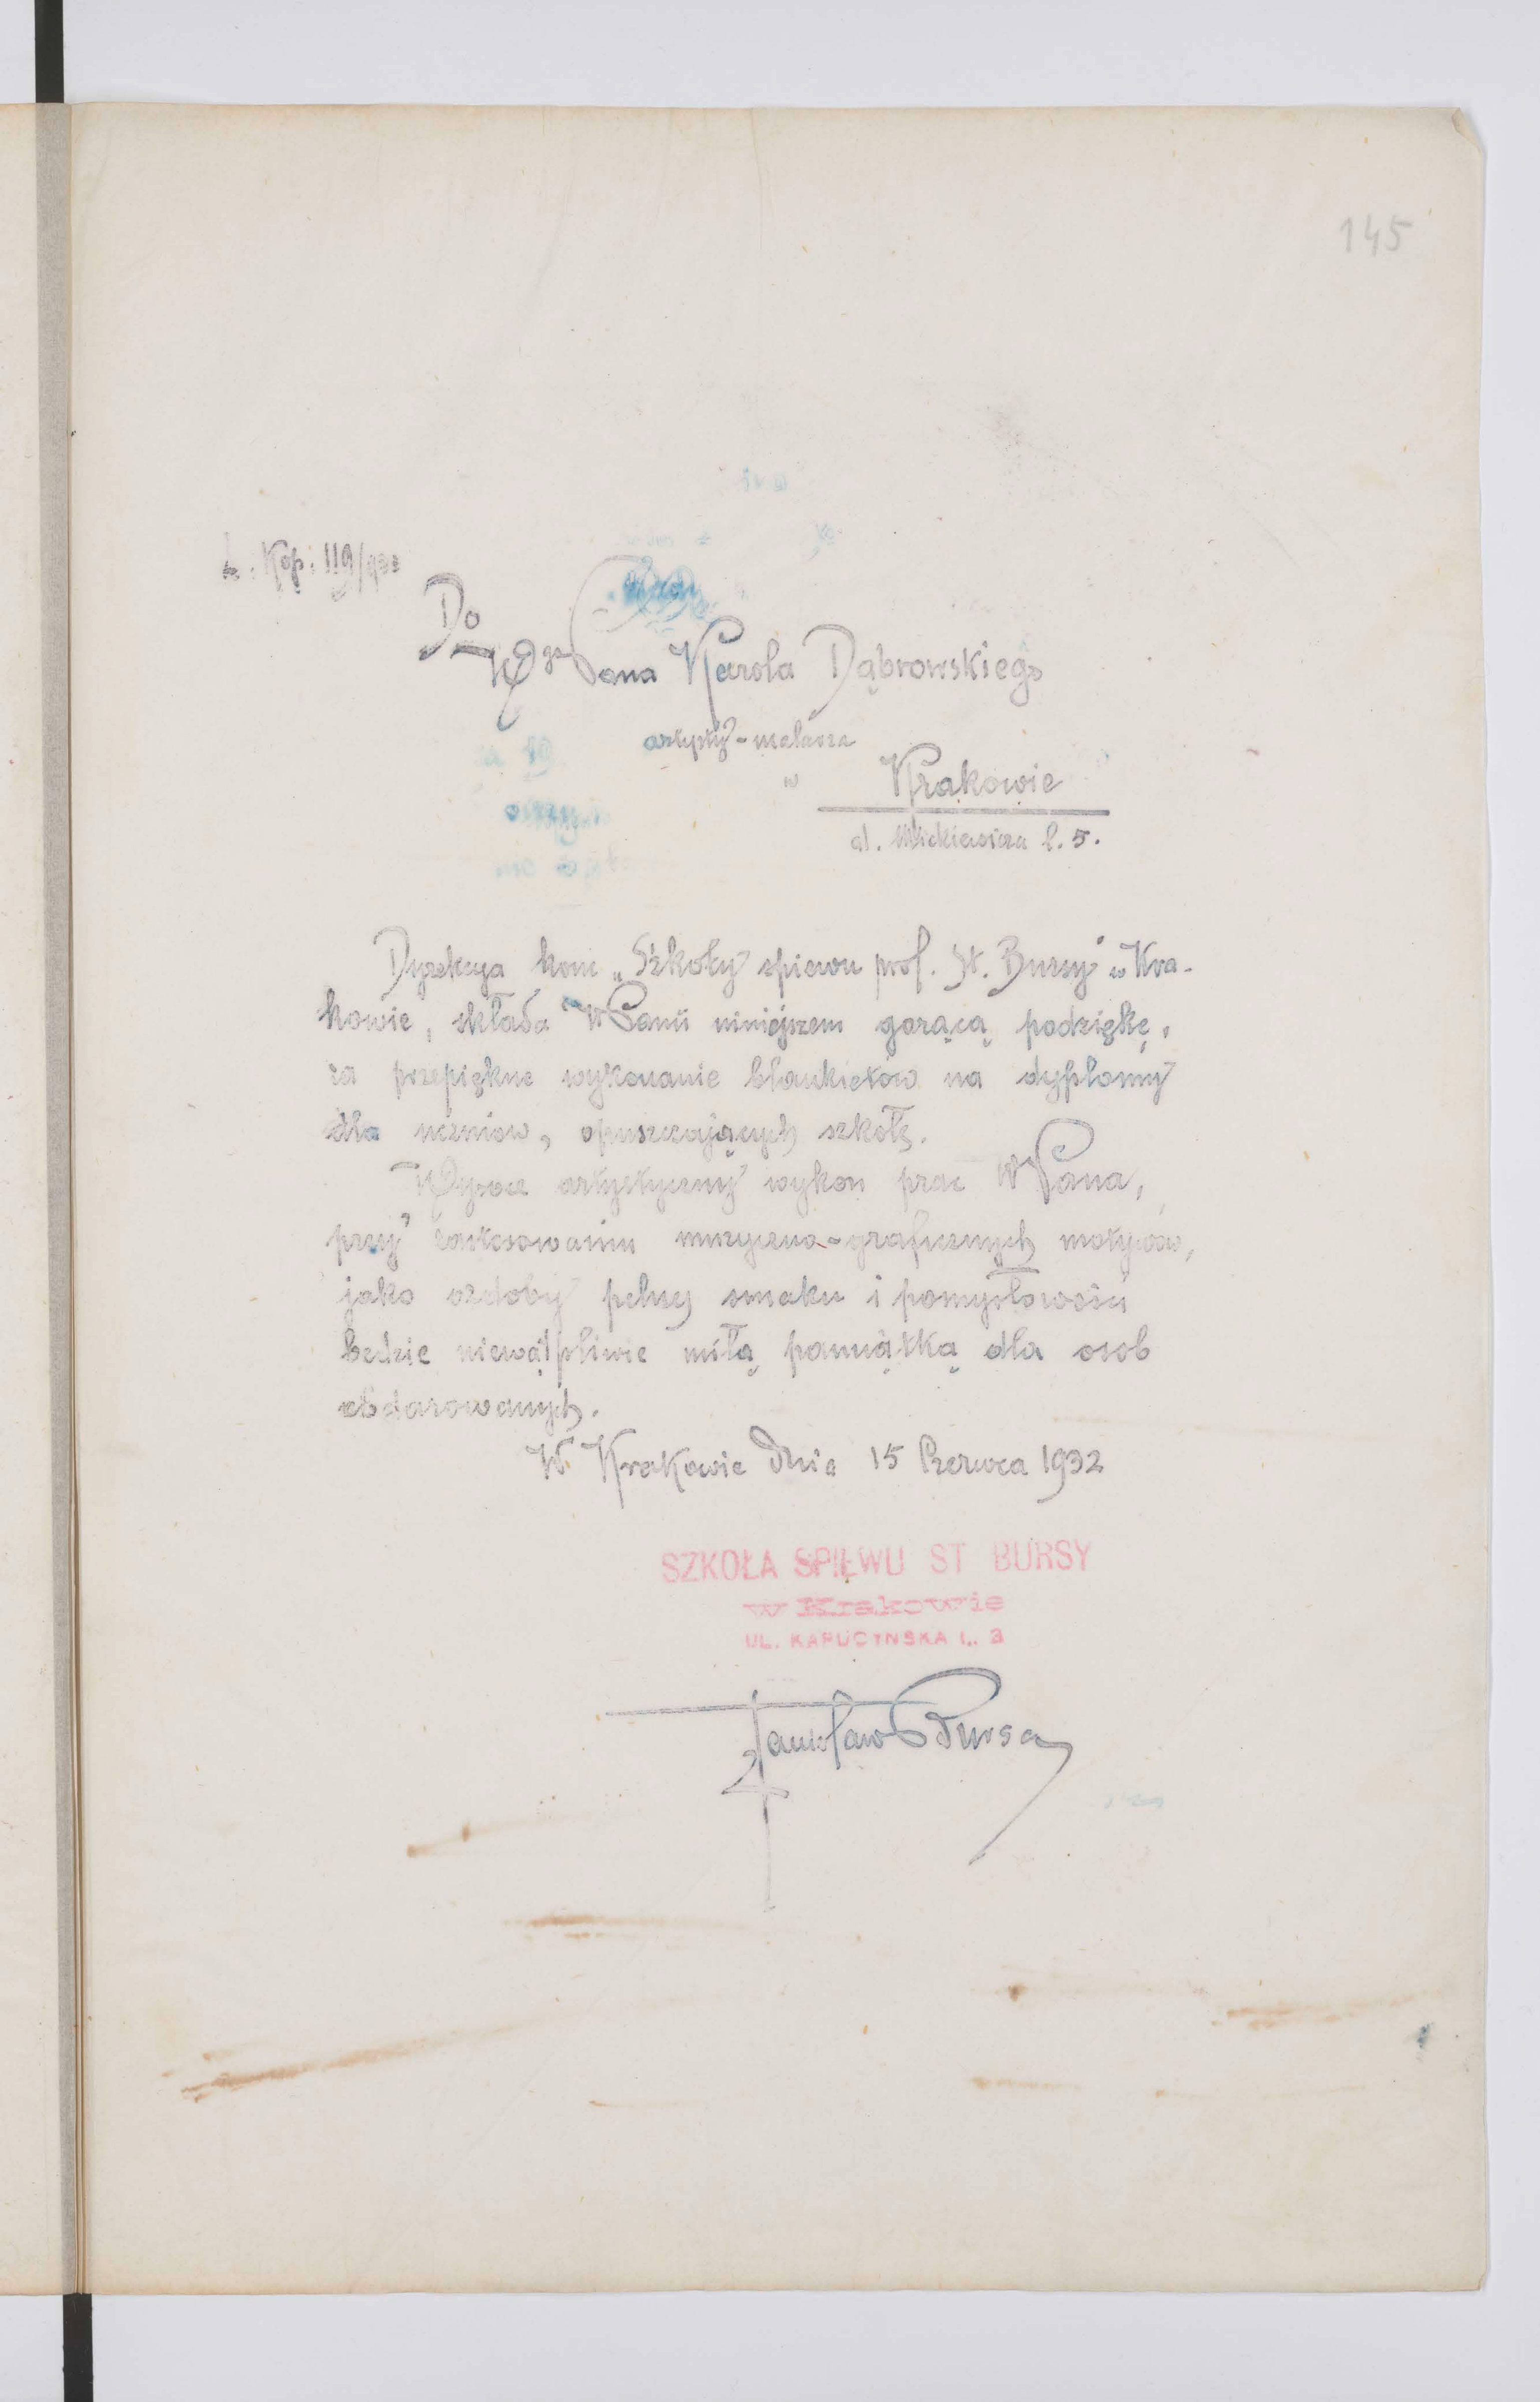 145
L. Kop. 119/932
Do
WPana Karola Dąbrowskiego
artysty-malarza
w Krakowie
al. Mickiewicza l. 5.
Dyrekcya konc „Szkoły śpiewu prof. St. Bursy" w Kra-
kowie, składa WPanu niniejszem gorącą podziękę,
za przepiękne wykonanie blankietów na dyplomy
dla uczniow, opuszczających szkołę.
Wysoce artystyczny wykon prac WPana,
przy zastosowaniu muzyczno-graficznych motywów,
jako ozdoby pełnej smaku i pomysłowości
będzie niewątpliwie miłą pamiątką dla osob
obdarowanych.
W Krakowie dnia 15 Czerwca 1932
SZKOŁA SPIEWU ST BURSY
w Krakowie
UL. KAPUCYNSKA L. 3
Stanisław Bursa